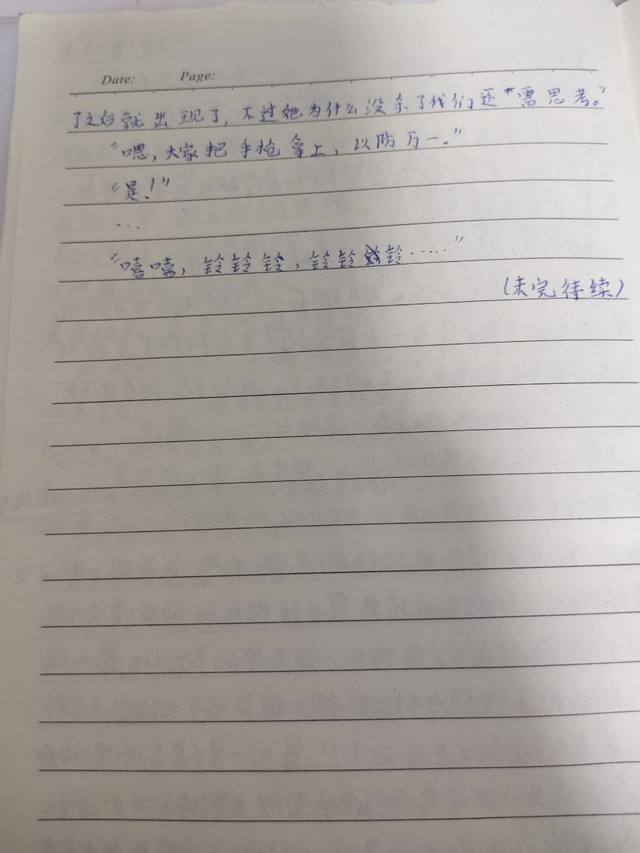 Date: Page:
了之后就出现了，不过她为什么没杀了我们还"需思考。"
"嗯，大家把手枪拿上，以防万一。"
"是！"
...
"嘻嘻，铃铃铃，铃铃铃……"
(未完待续)